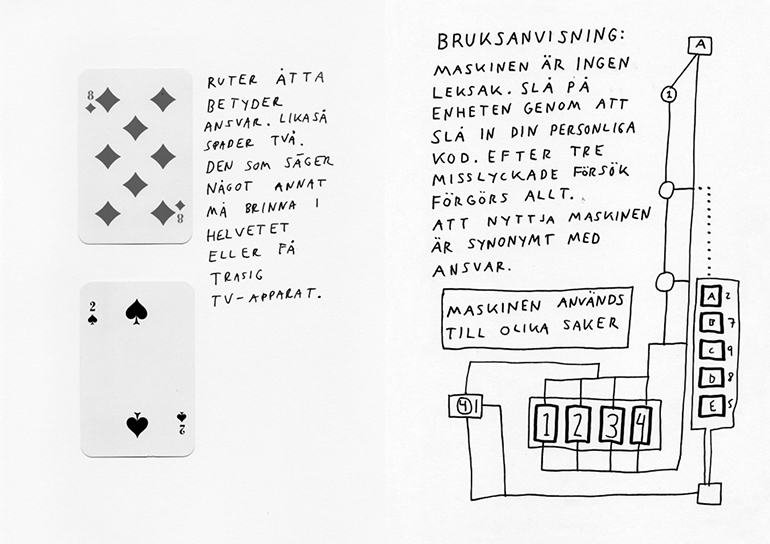 8
8
2
2
RUTER ÅTTA
BETYDER
ANSVAR. LIKASÅ
SPADER TVÅ.
DEN SOM SÄGER
NÅGOT ANNAT
MÅ BRINNA I
HELVETET
ELLER FÅ
TRASIG
TV-APPARAT.
BRUKSANVISNING:
MASKINEN ÄR INGEN
LEKSAK. SLÅ PÅ
ENHETEN GENOM ATT
SLÅ IN DIN PERSONLIGA
KOD. EFTER TRE
MISSLYCKADE FÖRSÖK
FÖRGÖRS ALLT.
ATT NYTTJA MASKINEN
ÄR SYNONYMT MED
ANSVAR.
MASKINEN ANVÄNDS
TILL OLIKA SAKER
A
1
A 2
B 7
C 9
D 8
E 5
4 1
1 2 3 4